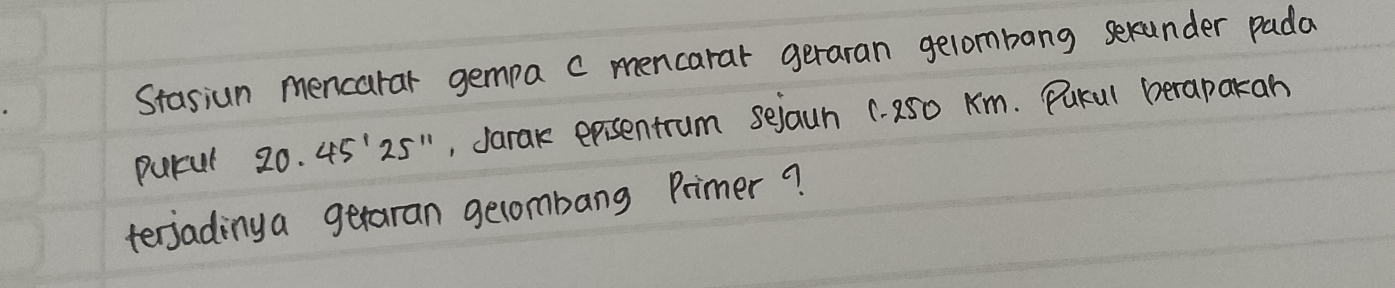 Stasiun mencatat gempa C mencatat getaran gelombang sekunder pada
pukul 20.45'25", Jarak episentrum sejauh 1.250 Km. Pukul berapakah
terjadinya getaran gelombang Primer?